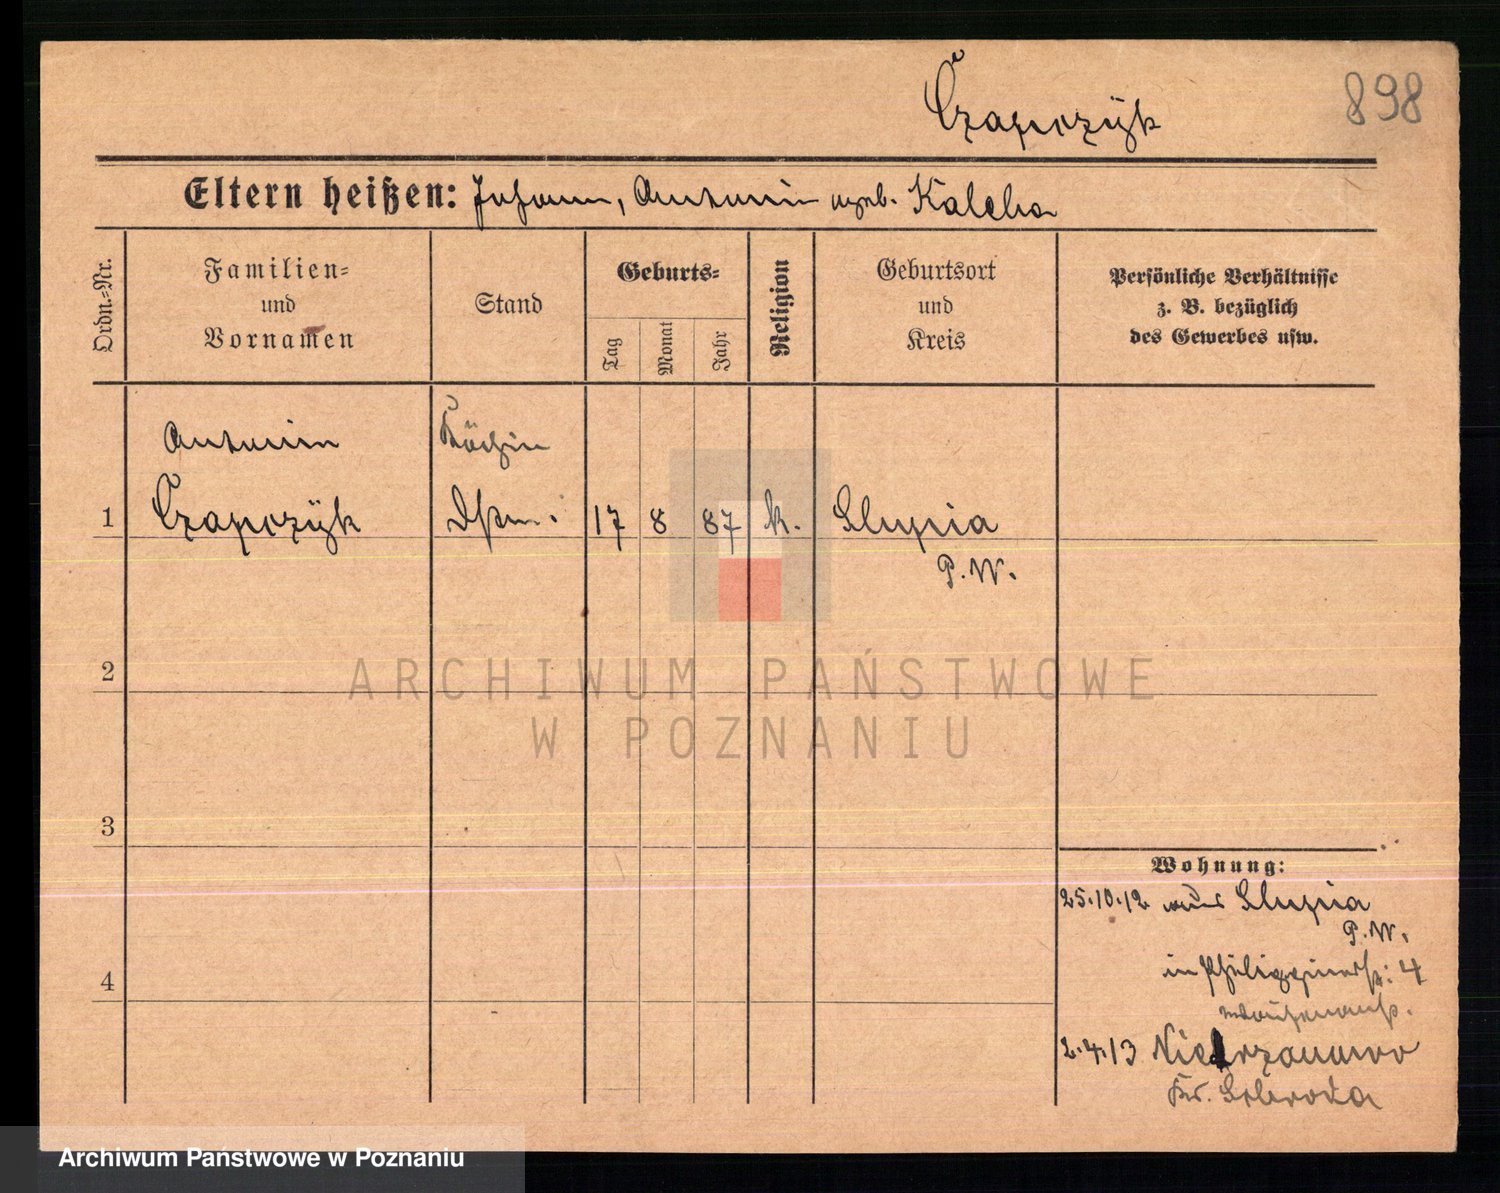 Czapczÿk
898
Eltern heißen: Johann, Antonin geb. Kalcha
Ordn.-Nr.
Familien-
und
Vornamen
Stand
Geburts-
Tag
Monat
Jahr
Religion
Geburtsort
und
Kreis
Persönliche Verhältnisse
z. B. bezüglich
des Gewerbes usw.
Antonin
Köchin
1
Czapczÿk
17
8
87
k.
Slupia
P. W.
2
ARCHIWUM PAŃSTWOWE
W POZNANIU
3
Wohnung:
25.10.12 aus Slupia
P. W.
4
in
4
2.4.13
Kr. Schroda
Archiwum Państwowe w Poznaniu